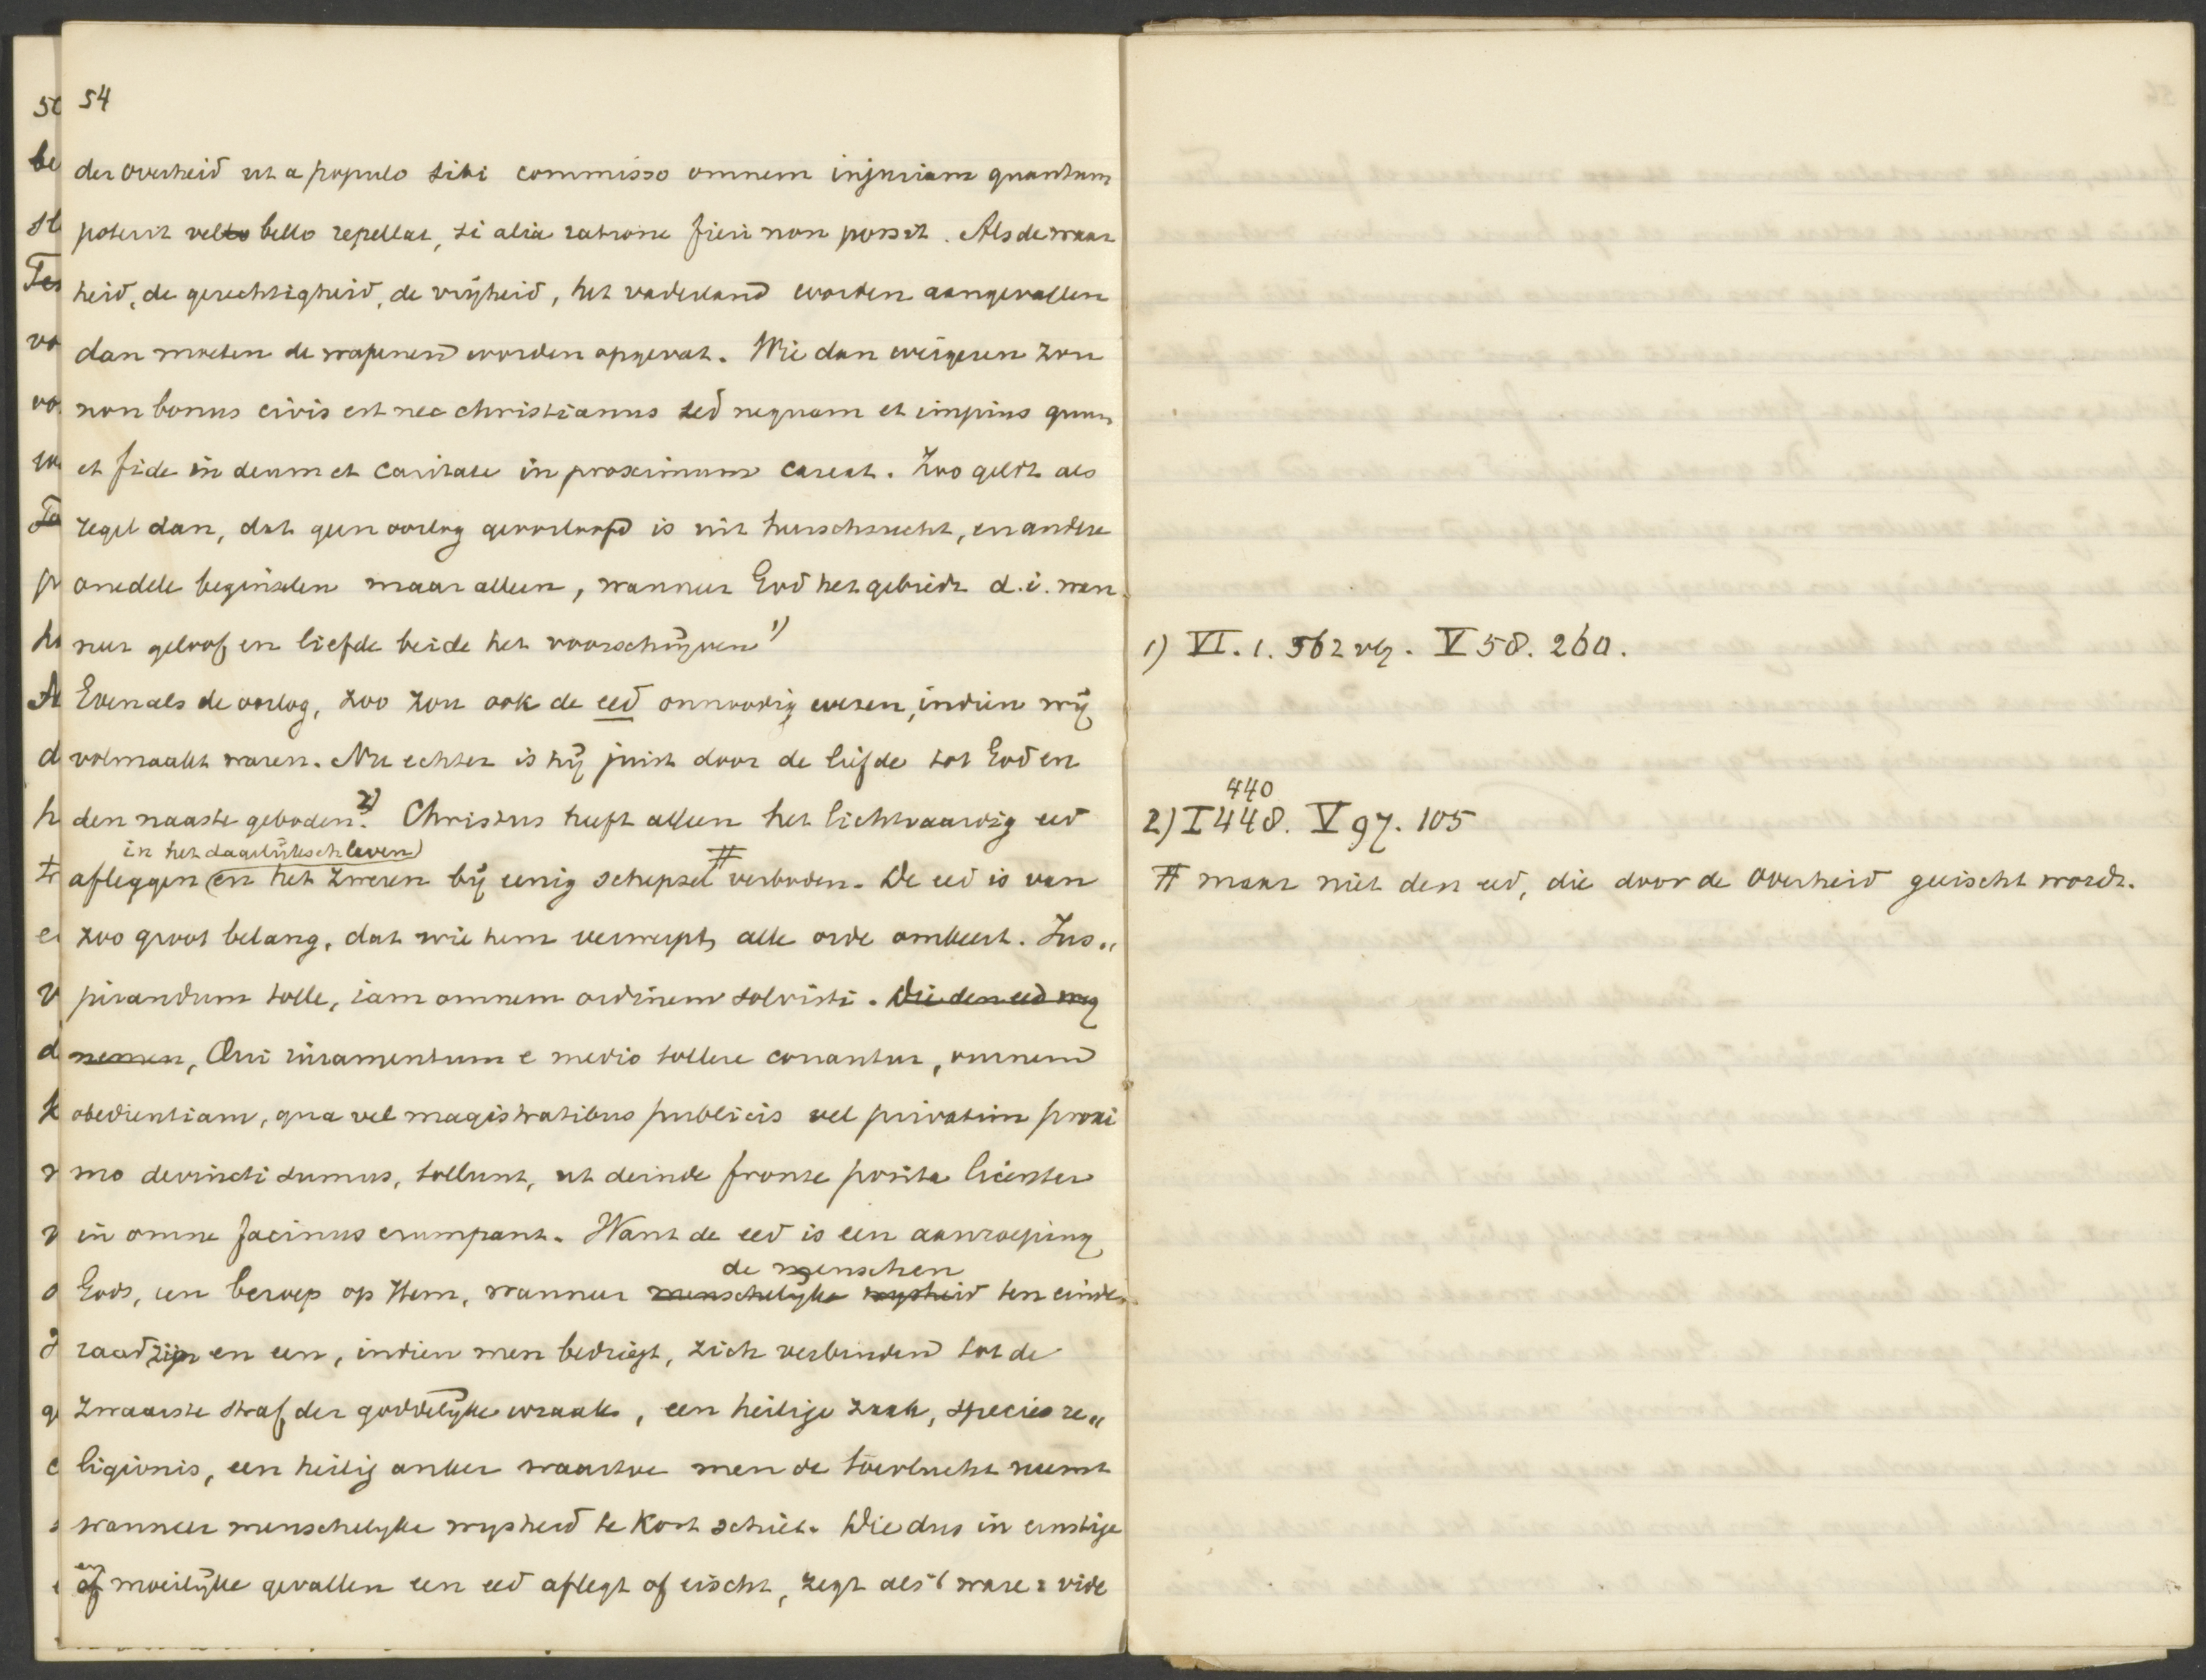 54
der overheid ut a populo sibi commisso omnem injuriam quantum
poterit vel bello repellat, si alia ratione fieri non possit. Als de waar
heid, de gerechtigheid, de vrijheid, het vaderland worden aangevallen
dan moeten de wapenen worden opgevat. Wie dan weigeren zou
non bonus civis est nec christianus sed nequam et impius quum
et fide in deum et caritate in proximum careat. Zoo geldt als
regel dan, dat geen oorlog geoorloofd is uit heerschzucht, en andere
onedele beginselen maar alleen, wanneer God het gebiedt d.i. wan
neer geloof en liefde beide het voorschrijven 1)
Evenals de oorlog, zoo zou ook de eed onnoodig wezen, indien wij
volmaakt waren. Nu echter is hij juist door de liefde tot God en
den naaste geboden. 2) Christus heeft alleen het lichtvaardig eed
in het dagelijksch leven
afleggen en het zweren bij eenig schepsel # verboden. De eed is van
zoo groot belang, dat wie hem verwerpt, alle orde omkeert. Jus„
jurandum tolle, iam omnem ordinem solvisti. Die den eed weg
nemen, Qui iuramentum e medio tollere conantur, omnem
obedientiam, qua vel magistratibus publicis vel privatim proxi
mo devincti sumus, tollunt, ut deinde fronte posita licenter
in omne facinus erumpant. Want de eed is een aanroeping
de menschen
Gods, een beroep op Hem, wanneer menschelijke wijsheid ten einde
raad zijn en een, indien men bedriegt, zich verbinden tot de
zwaarste straf der goddelijke wraak, een heilige zaak, species re„
ligionis, een heilig anker waartoe men de toevlucht neemt
wanneer menschelyke wysheid te kort schiet. Wie dus in ernstige
en
of moeilijke gevallen een eed aflegt of eischt, zegt als 't ware: vide
1) VI. 1. 562 vlg. V 58. 260.
440
2) I 448. V 97. 105
# maar niet den eed, die door de Overheid geëischt wordt.